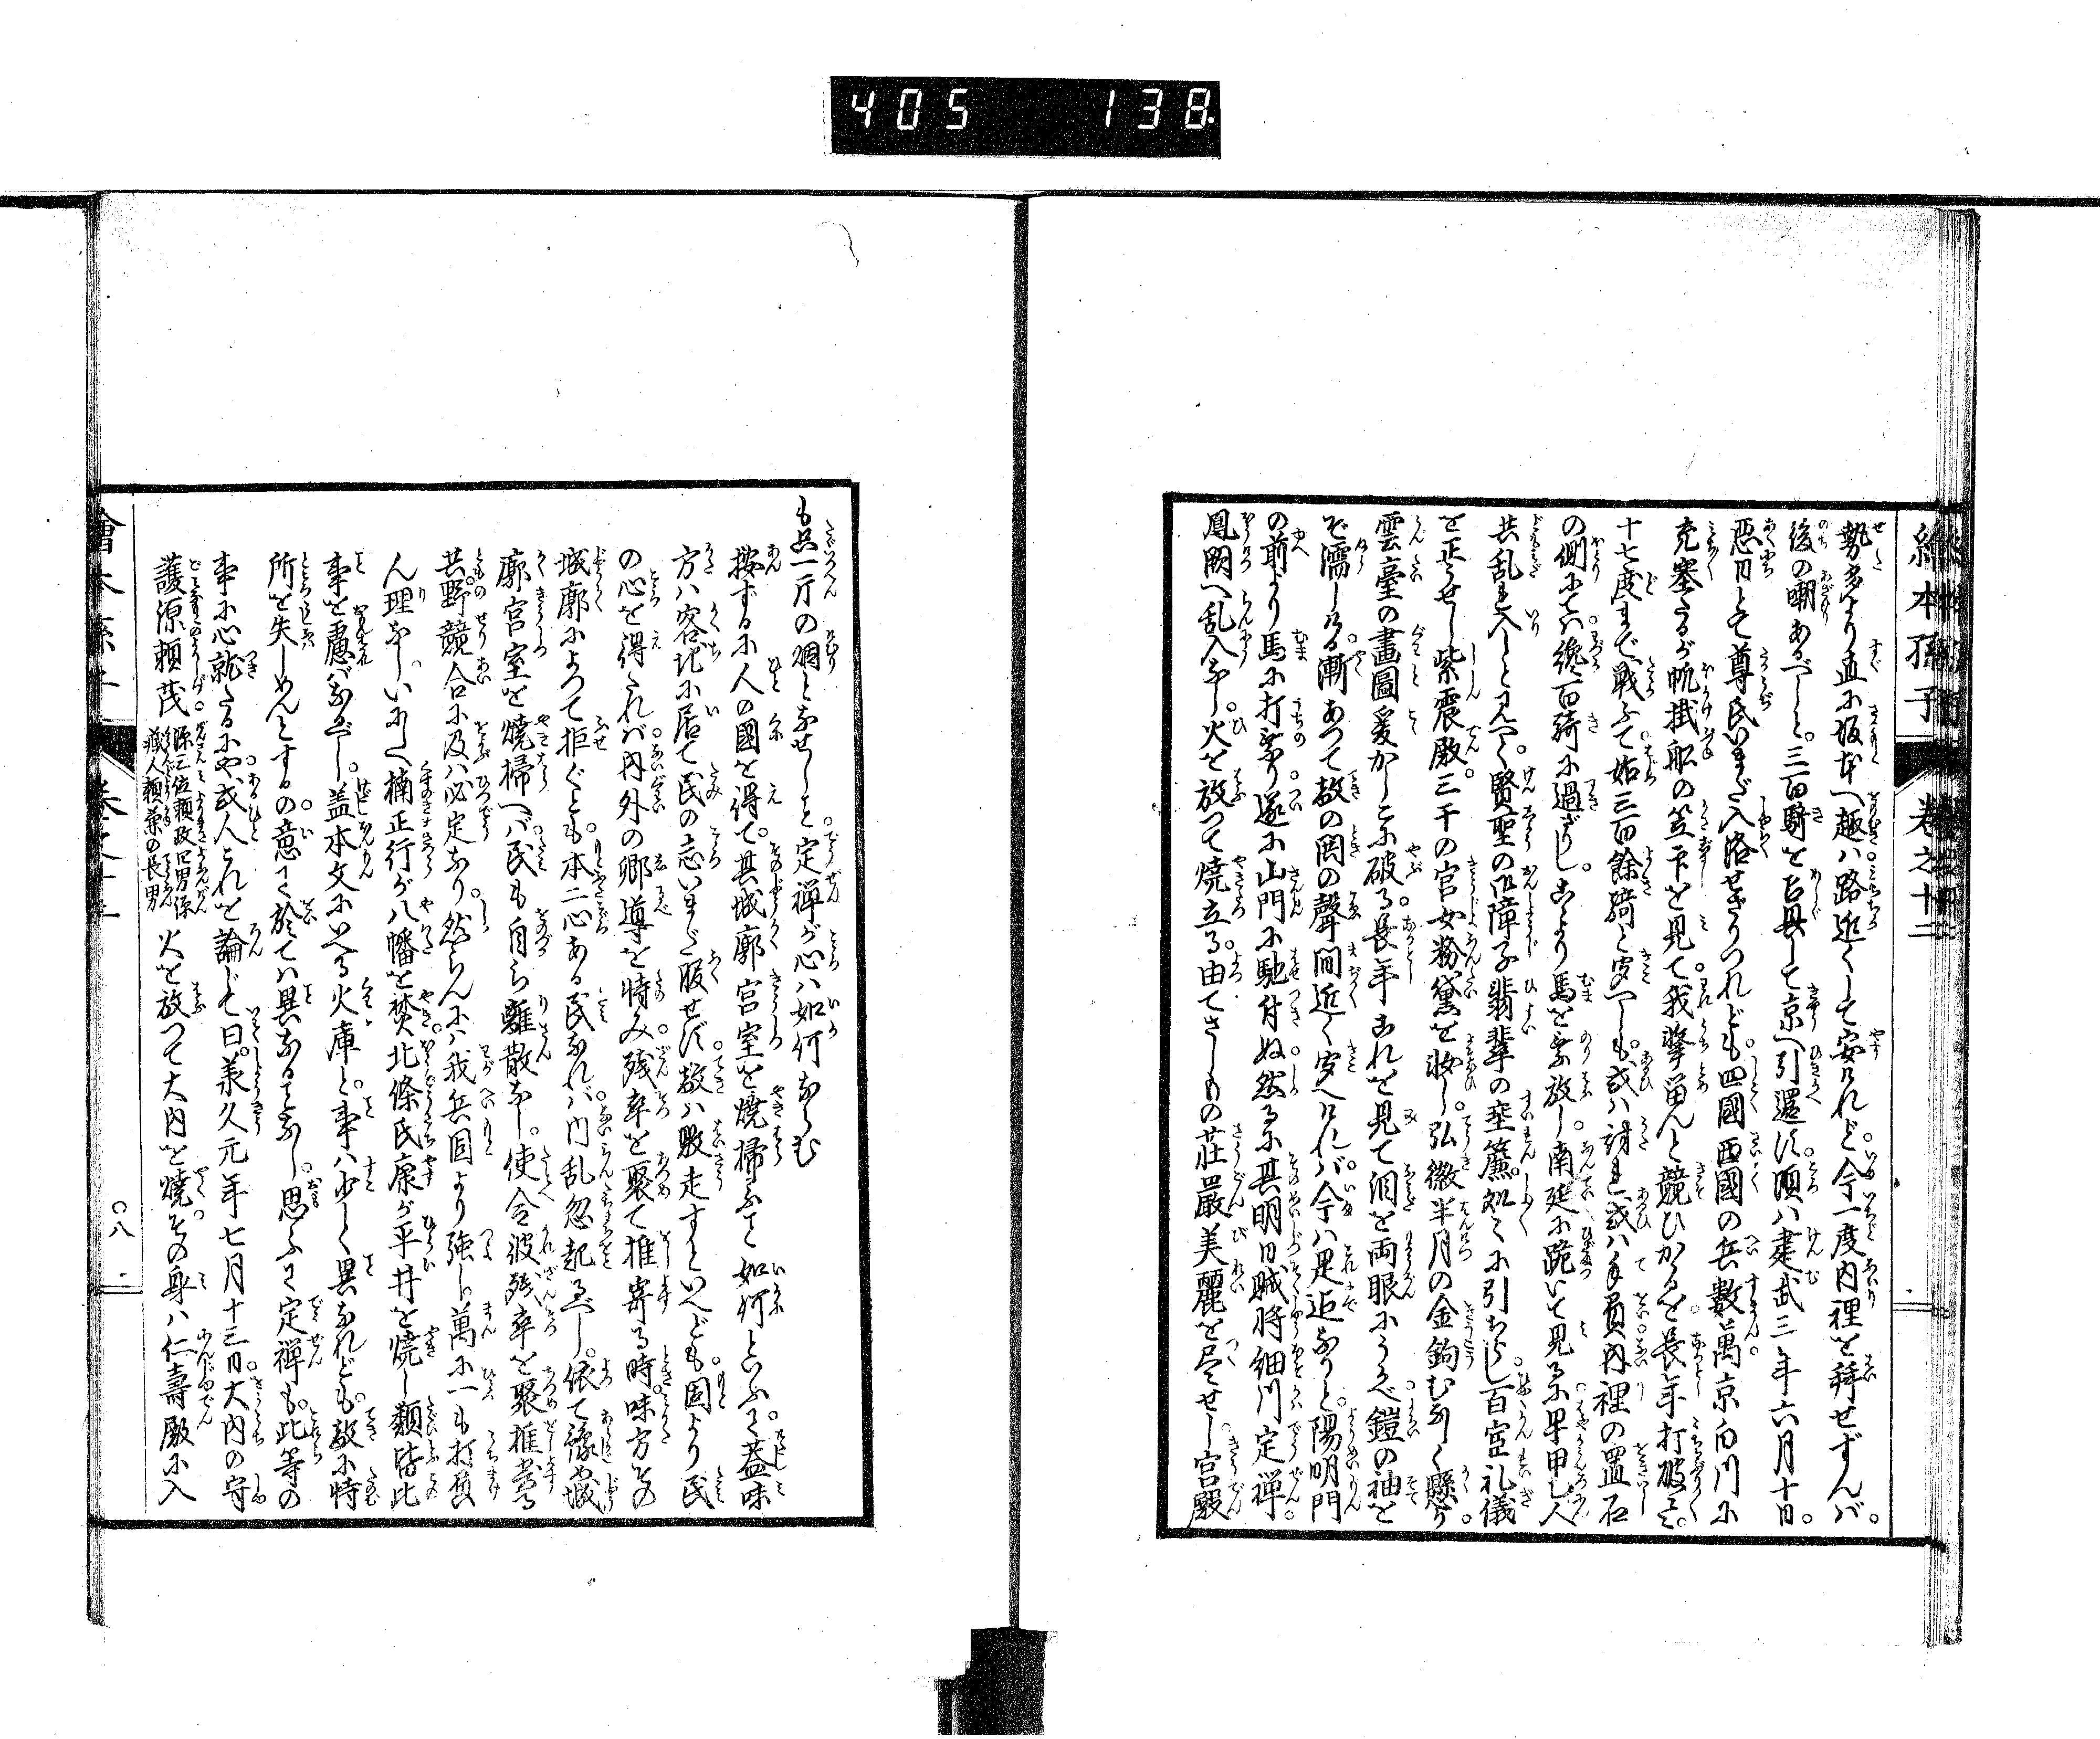 405 138
繪本孫子 巻之十二
勢多より直に坂本へ趣ハ路近くして安けれど。今一度内裡を拜せずんバ。
後の嘲あるべしと。三百騎を召具して京へ引還す。頃ハ建武三年六月十日。
惡日とて尊氏いまだ入洛せざりつれども。四國西國の兵數萬京白川に
充塞たるが帆掛舩の笠下を見て。我撃留んと競ひかゝるを。長年打破ミ。
十七度まで戰ふて始三百餘騎と聞へしも。或ハ討ま或ハ手負内裡の置石
の側にてハ。纔百騎に過ざりし。こより馬を乘放し。南廷に跪いて見るに早甲乙人
共乱ま入しと見へて。賢聖の障子翡翠の埀簾。処々に引ちらし百官礼儀
を正うせし紫震殿。三千の官女粉黛を妝し。弘徽半月の金鉤むなしく懸り。
雲臺の畫圖爰かしこに破る。長年これを見て泪を両眼にうかべ鎧の袖を
ぞ濡しける。漸あつて敵の鬨の聲間近く聞へけれバ。今ハ是迄なりと。陽明門
の前より馬に打乘り。遂に山門に馳付ぬ然るに其明日賊將細川定禪。
鳳闕へ乱入なし。火を放つて燒立る。由てさしもの莊嚴美麗を尽せし宮殿
も只一片の烟となせしと。定禪が心ハ如何ならむ
按ずるに人の國を得て。其城廓宮室を燒掃ふて如何といふて。葢味
方ハ客地に居て民の志いまだ服せず。敵ハ敗走すといへども。固より民
の心を得たれバ。内外の郷導を恃み。殘卒を聚て推寄る時。味方その
城廓によつて拒ぐとも。本二心ある民なれバ。内乱忽起るべし。依て豫め城
廓宮室を燒掃へバ。民も自ら離散なし。使令彼殘卒を聚推當る
共。野競合に及バ必定なり。然らんにハ我兵固より強し。萬に一も打負
ん理なし。いにしへ楠正行が八幡を焚。北條氏康が平井を燒し類皆此
事を慮バなるべし。盖本文にいへる火庫と。事ハ少しく異なれども。敵に恃
所を失しめんとするの。意に於てハ異なる事なし。思ふに定禪も。此等の
事に心就たるにや。或人これを論じて曰。承久元年七月十三日。大内の守
護源頼茂 源三位頼政四男源蔵人頼兼の長男 火を放つて大内を燒。その身ハ仁壽殿に入
繪本孫子 巻之十二 〇八